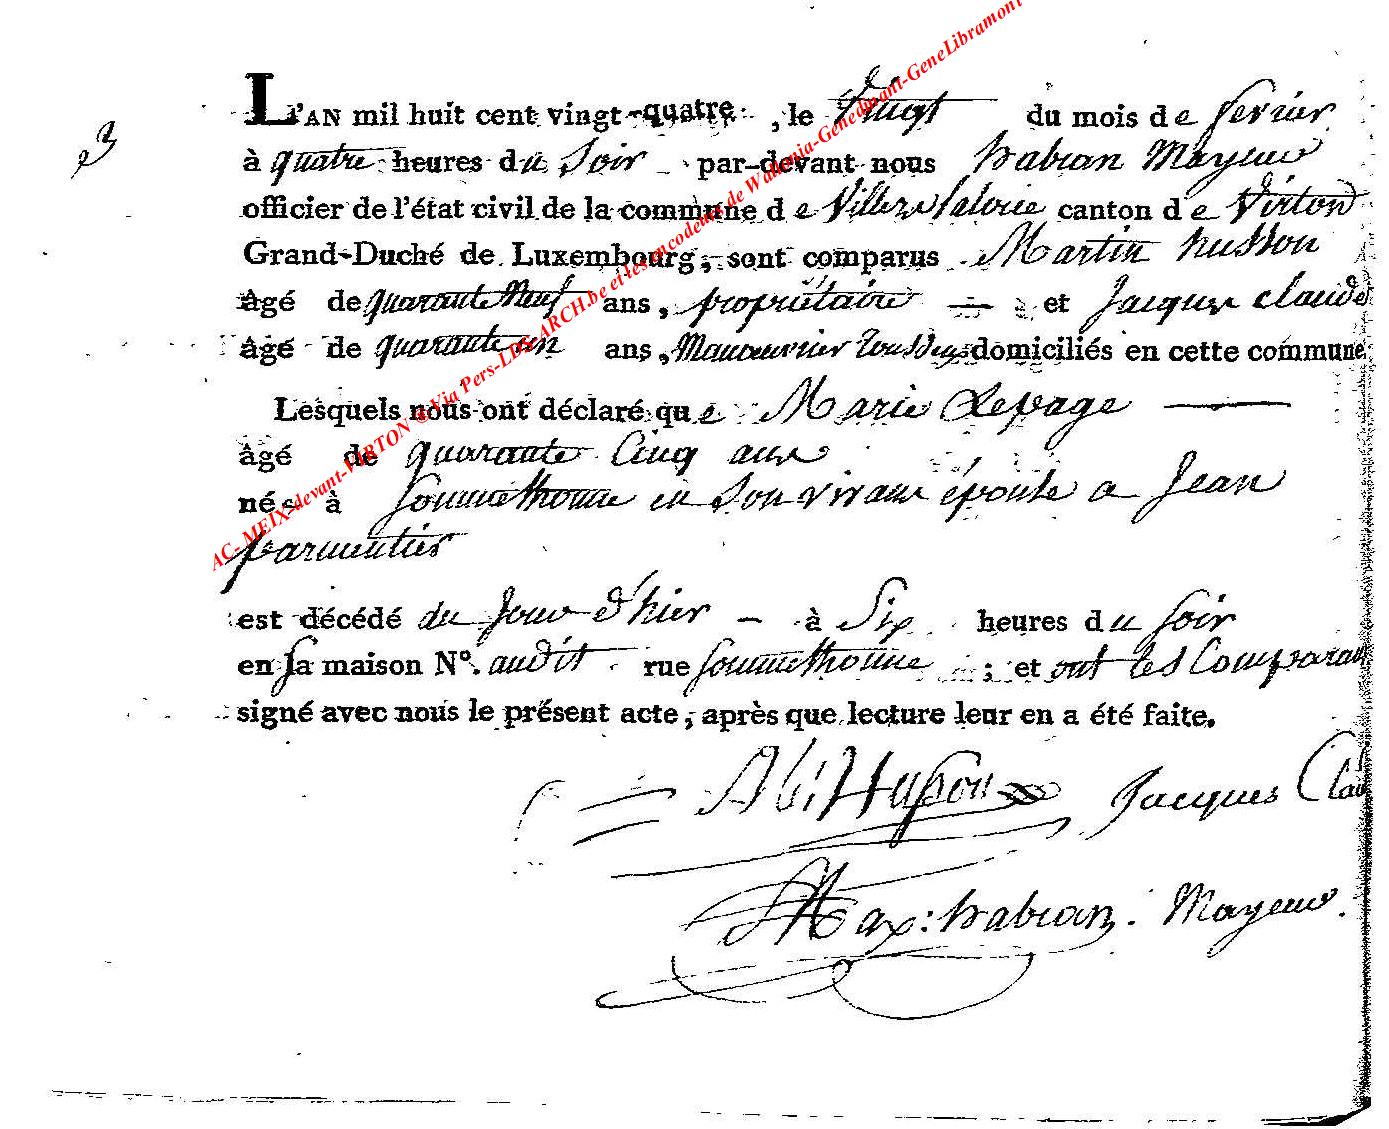 3
L'AN mil huit cent vingt-quatre, le Vingt du mois de fevrier
à quatre heures du Soir par-devant nous habran Mayeur
officier de l'état civil de la commune de Villers laloue canton de Virton
Grand-Duché de Luxembourg, sont comparus Martin husson
âgé de quarante Neuf ans, propriétaire — et Jacques Claude
âgé de quarante un ans, Manoeuvrier tous deux domiciliés en cette commune
Lesquels nous ont déclaré que Marie Lepage —
âgé de quarante Cinq ans
né à Sommethonne en Son vivant épouse a Jean
parmentier
est décédé du Jour d'hier - à Six heures du Soir
en sa maison N°. audit rue Sommethonne ; et ont les Comparans
signé avec nous le présent acte, après que lecture leur en a été faite.
Husson Jacques Clau
Max: habran. Mayeur.
AC- MEIX-devant-VIRTON © Via Pers-LDS-ARCH.be et les encodeurs de Wallonia-Genedinant-GeneLibramont